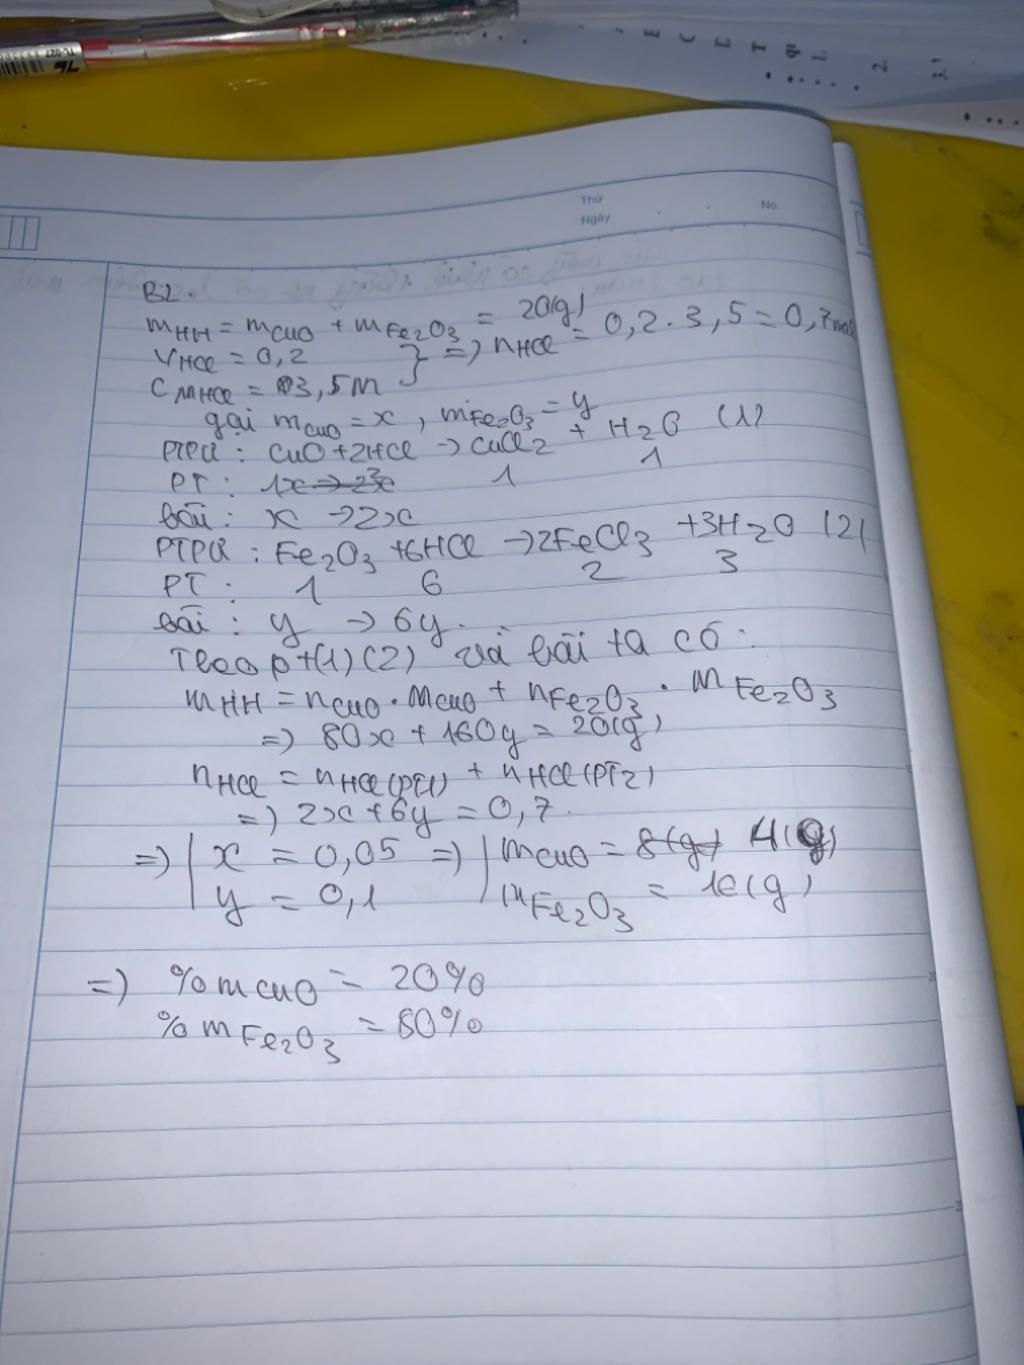 TL-027
E C L T
1.
2.
3.1
Thứ
Ngày
No.
B2.
mHH = mCuO + mFe2O3 = 20(g)
VHCl = 0,2 } => nHCl = 0,2 . 3,5 = 0,7 mol
CMHCl = 3,5M
gọi mCuO = x, mFe2O3 = y
PTPƯ : CuO + 2HCl -> CuCl2 + H2O (1)
PT : 1x -> 2x 1 1
bài : x -> 2x
PTPƯ : Fe2O3 + 6HCl -> 2FeCl3 + 3H2O (2)
PT : 1 6 2 3
bài : y -> 6y.
Theo pt(1)(2) và bài ta có :
mHH = nCuO . MCuO + nFe2O3 . MFe2O3
=> 80x + 160y = 20(g)
nHCl = nHCl(PT1) + nHCl(PT2)
=> 2x + 6y = 0,7.
=> | x = 0,05 => | mCuO = 8(g) 4(g)
| y = 0,1 | mFe2O3 = 16(g)
=) %mCuO = 20%
%mFe2O3 = 80%